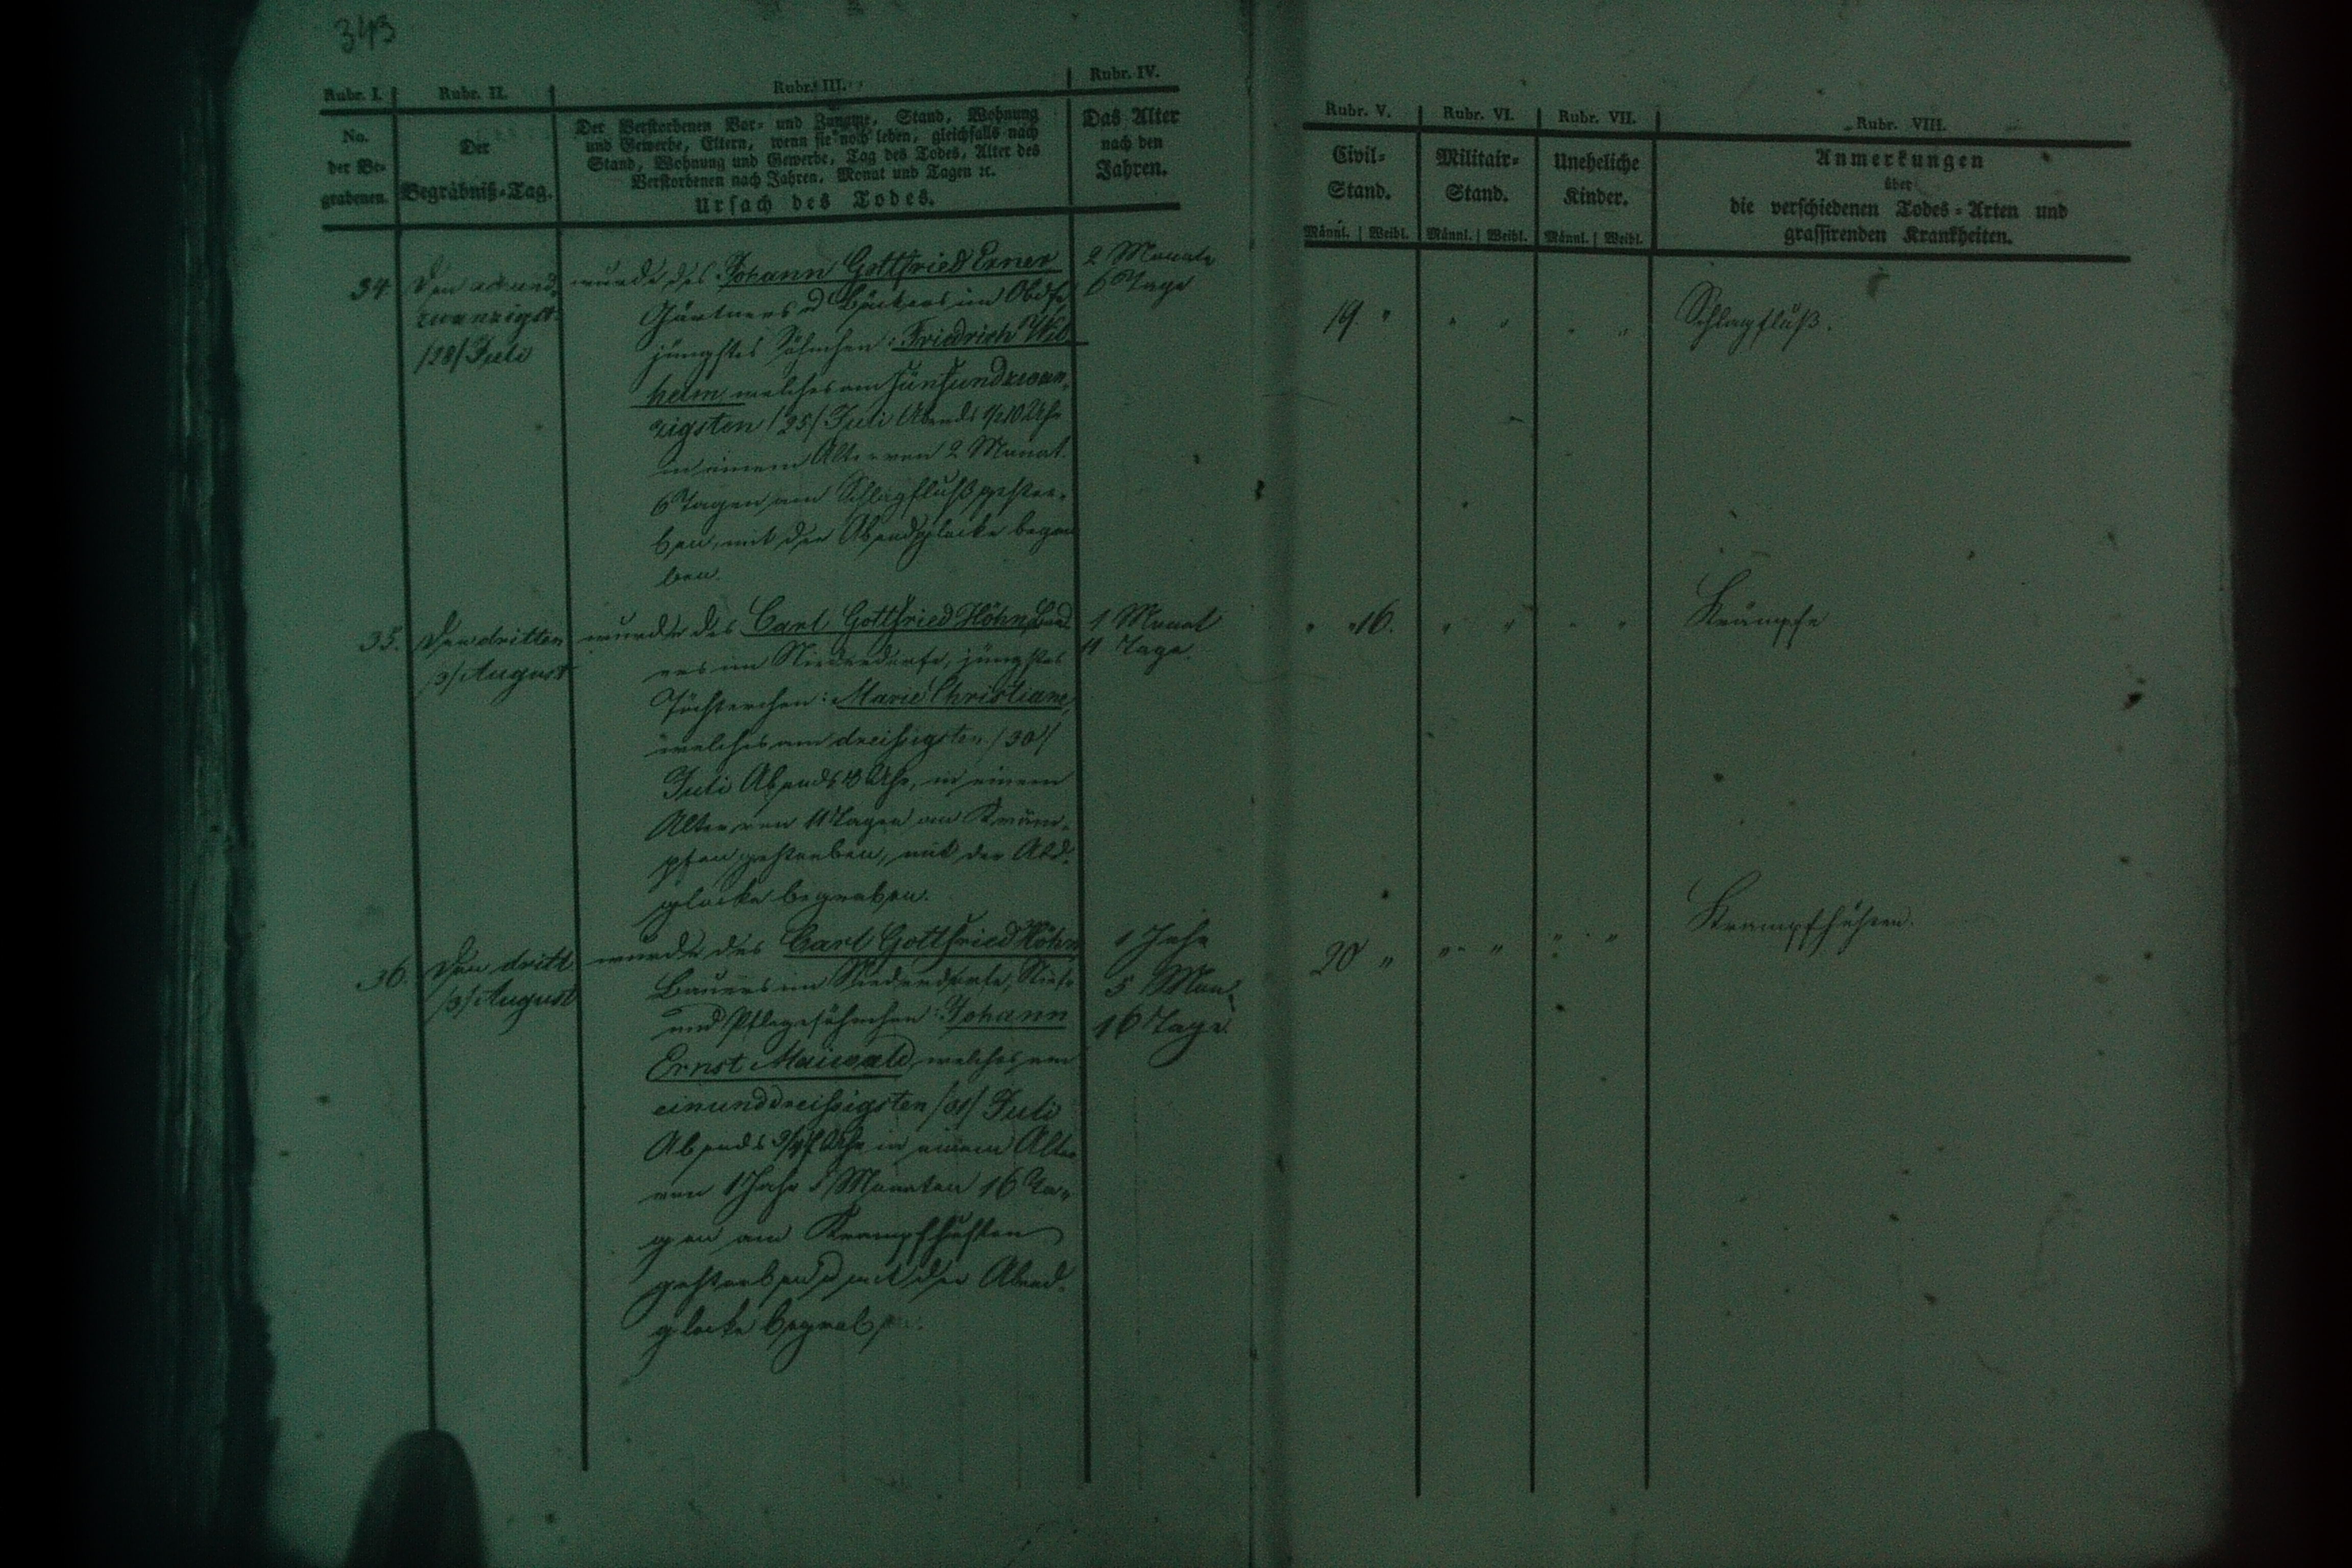 343
Rubr. I.
Rubr. II.
Rubr. III.
Rubr. IV.
No.
der Be-
grabenen.
Der
Begräbniß-Tag.
Der Verstorbenen Vor- und Zuname, Stand, Wohnung
und Gewerbe, Eltern, wenn sie noch leben, gleichfalls nach
Stand, Wohnung und Gewerbe, Tag des Todes, Alter des
Verstorbenen nach Jahren, Monat und Tagen ꝛc.
Ursach des Todes.
Das Alter
nach den
Jahren.
34.
zwanzigst.
/28/ Juli
wurde des Johann Gottfried Exner
Gärtners u Bäckers im Obdfe
jüngstes Söhnchen: Friedrich Wil-
helm welches am fünfundzwan-
zigsten /25/ Juli Abends 1/210 Uhr
in einem Alter von 2 Monat.
6 Tagen am Schlagfluß gestor-
ben, mit der Abendglocke begra
ben.
2 Monate
6 Tage
35.
Den dritten
/3/ August
wurde des Carl Gottfried Höhn, Bau
ers im Niederdorfe, jüngstes
Töchterchen: Marie Christiane,
welches am dreißigsten /30/
Juli Abends Uhr, in einem
Alter von 11 Tagen an Kräm-
pfen gestorben, mit der Abd-
glocke begraben.
1 Monat
11 Tage.
36.
Den dritt.
/3/ August
wurde des Carl Gottfried Höhn
Bauers im Niederdorfe,
und Pflegesöhnchen: Johann
Ernst Maiwald, welches am
einunddreißigsten /31/ Juli
Abends Uhr in einem Alter
von 1 Jahr 5 Monaten 16 Ta-
gen am Krampfhusten
gestorben u mit der Abend-
glocke begraben.
1 Jahr
5 Mon.
16 Tage
Rubr. V.
Rubr. VI.
Rubr. VII.
Rubr. VIII.
Civil-
Stand.
Männl. | Weibl.
Militair-
Stand.
Männl. | Weibl.
Uneheliche
Kinder.
Männl. | Weibl.
Anmerkungen
über
die verschiedenen Todes-Arten und
grassirenden Krankheiten.
19. " " " " "
Schlagfluß.
" 16. " " " "
Krämpfe
20 " " " " "
Krampfhusten.